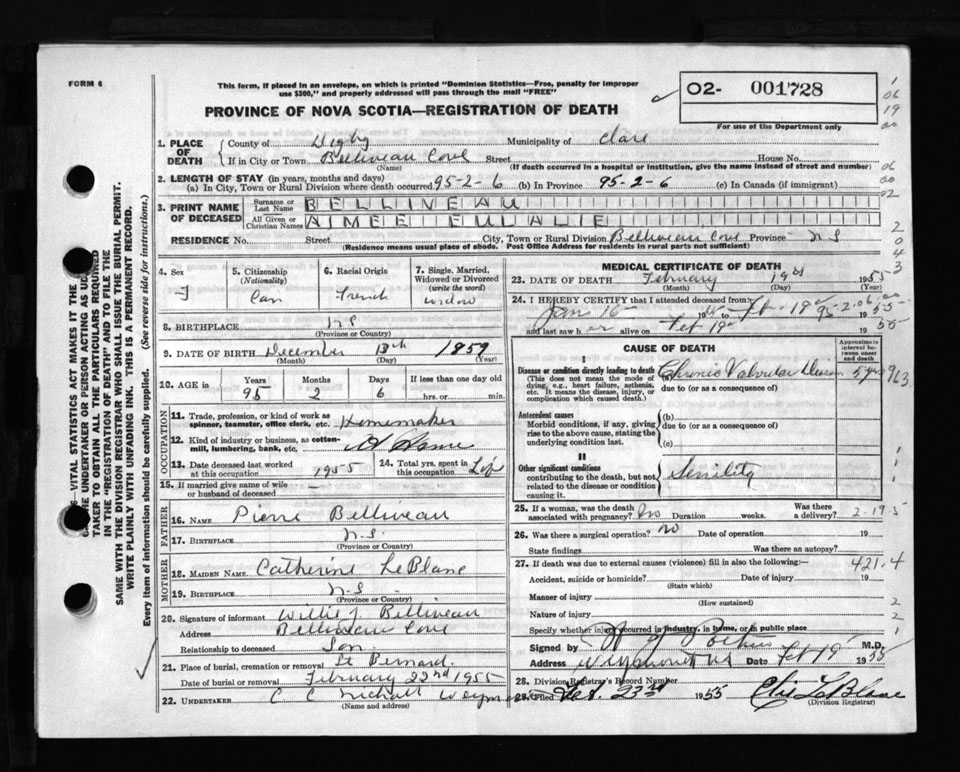 FORM 6
This form, if placed in an envelope, on which is printed "Dominion Statistics—Free, penalty for improper
use $300," and properly addressed will pass through the mail "FREE"
02- 001728
PROVINCE OF NOVA SCOTIA—REGISTRATION OF DEATH
For use of the Department only
1. PLACE OF DEATH County of Digby Municipality of Clare
If in City or Town Belliveau Cove Street House No.
(Name) (If death occurred in a hospital or institution, give the name instead of street and number)
2. LENGTH OF STAY (in years, months and days)
(a) In City, Town or Rural Division where death occurred 95-2-6 (b) In Province 95-2-6 (c) In Canada (if immigrant)
3. PRINT NAME OF DECEASED Surname or Last Name BELLIVEAU
All Given or Christian Names AIMEE EULALE
RESIDENCE No. Street City, Town or Rural Division Belliveau Cove Province N S
(Residence means usual place of abode. Post Office Address for residents in rural parts not sufficient)
4. Sex F
5. Citizenship (Nationality) Can
6. Racial Origin French
7. Single, Married, Widowed or Divorced (write the word) widow
8. BIRTHPLACE N S
(Province or Country)
9. DATE OF BIRTH December 13th 1859
(Month) (Day) (Year)
10. AGE in Years Months Days If less than one day old
95 2 6 hrs. or min.
OCCUPATION
11. Trade, profession, or kind of work as spinner, teamster, office clerk, etc. Homemaker
12. Kind of industry or business, as cotton-mill, lumbering, bank, etc. At Home
13. Date deceased last worked at this occupation 1955
14. Total yrs. spent in this occupation Life
15. If married give name of wife or husband of deceased —
FATHER
16. NAME Pierre Belliveau
17. BIRTHPLACE N.S.
(Province or Country)
MOTHER
18. MAIDEN NAME Catherine LeBlanc
19. BIRTHPLACE N.S
(Province or Country)
20. Signature of informant Willie J. Belliveau
Address Belliveau Cove
Relationship to deceased Son
21. Place of burial, cremation or removal St Bernard.
Date of burial or removal February 22nd 1955
22. UNDERTAKER C C Nichall
(Name and address)
MEDICAL CERTIFICATE OF DEATH
23. DATE OF DEATH February 19th 1955
(Month) (Day)
24. I HEREBY CERTIFY that I attended deceased from
Jan 16 to Feb 19th 95-2-06 1955
and last saw her alive on Feb 19th 1955
CAUSE OF DEATH
Approximate interval between onset and death
I
Disease or condition directly leading to death
(This does not mean the mode of dying, e.g., heart failure, asthenia, etc. It means the disease, injury, or complication which caused death.)
(a) Chronic Valvular Disease 5 yrs
due to (or as a consequence of)
Antecedent causes
Morbid conditions, if any, giving rise to the above cause, stating the underlying condition last.
(b)
due to (or as a consequence of)
(c)
II
Other significant conditions
contributing to the death, but not related to the disease or condition causing it.
Senility
25. If a woman, was the death associated with pregnancy? No Duration weeks. Was there a delivery? 2-19 5
26. Was there a surgical operation? No Date of operation 19
State findings Was there an autopsy?
27. If death was due to external causes (violence) fill in also the following: 421.4
Accident, suicide or homicide? Date of injury 19
(State which)
Manner of injury
(How sustained)
Nature of injury
Specify whether injury occurred in industry, in home, or in public place
Signed by M.D.
Address Weymouth N S Date Feb 19 1955
28. Division Registrar's Record Number
29. Filed Feb. 23rd 1955 Elie LeBlanc
(Division Registrar)
VITAL STATISTICS ACT MAKES IT THE
THE UNDERTAKER OR PERSON ACTING AS
TAKER TO OBTAIN ALL THE PARTICULARS REQUIRED
IN THE "REGISTRATION OF DEATH" AND TO FILE THE
SAME WITH THE DIVISION REGISTRAR WHO SHALL ISSUE THE BURIAL PERMIT.
WRITE PLAINLY WITH UNFADING INK. THIS IS A PERMANENT RECORD.
Every item of information should be carefully supplied. (See reverse side for instructions.)